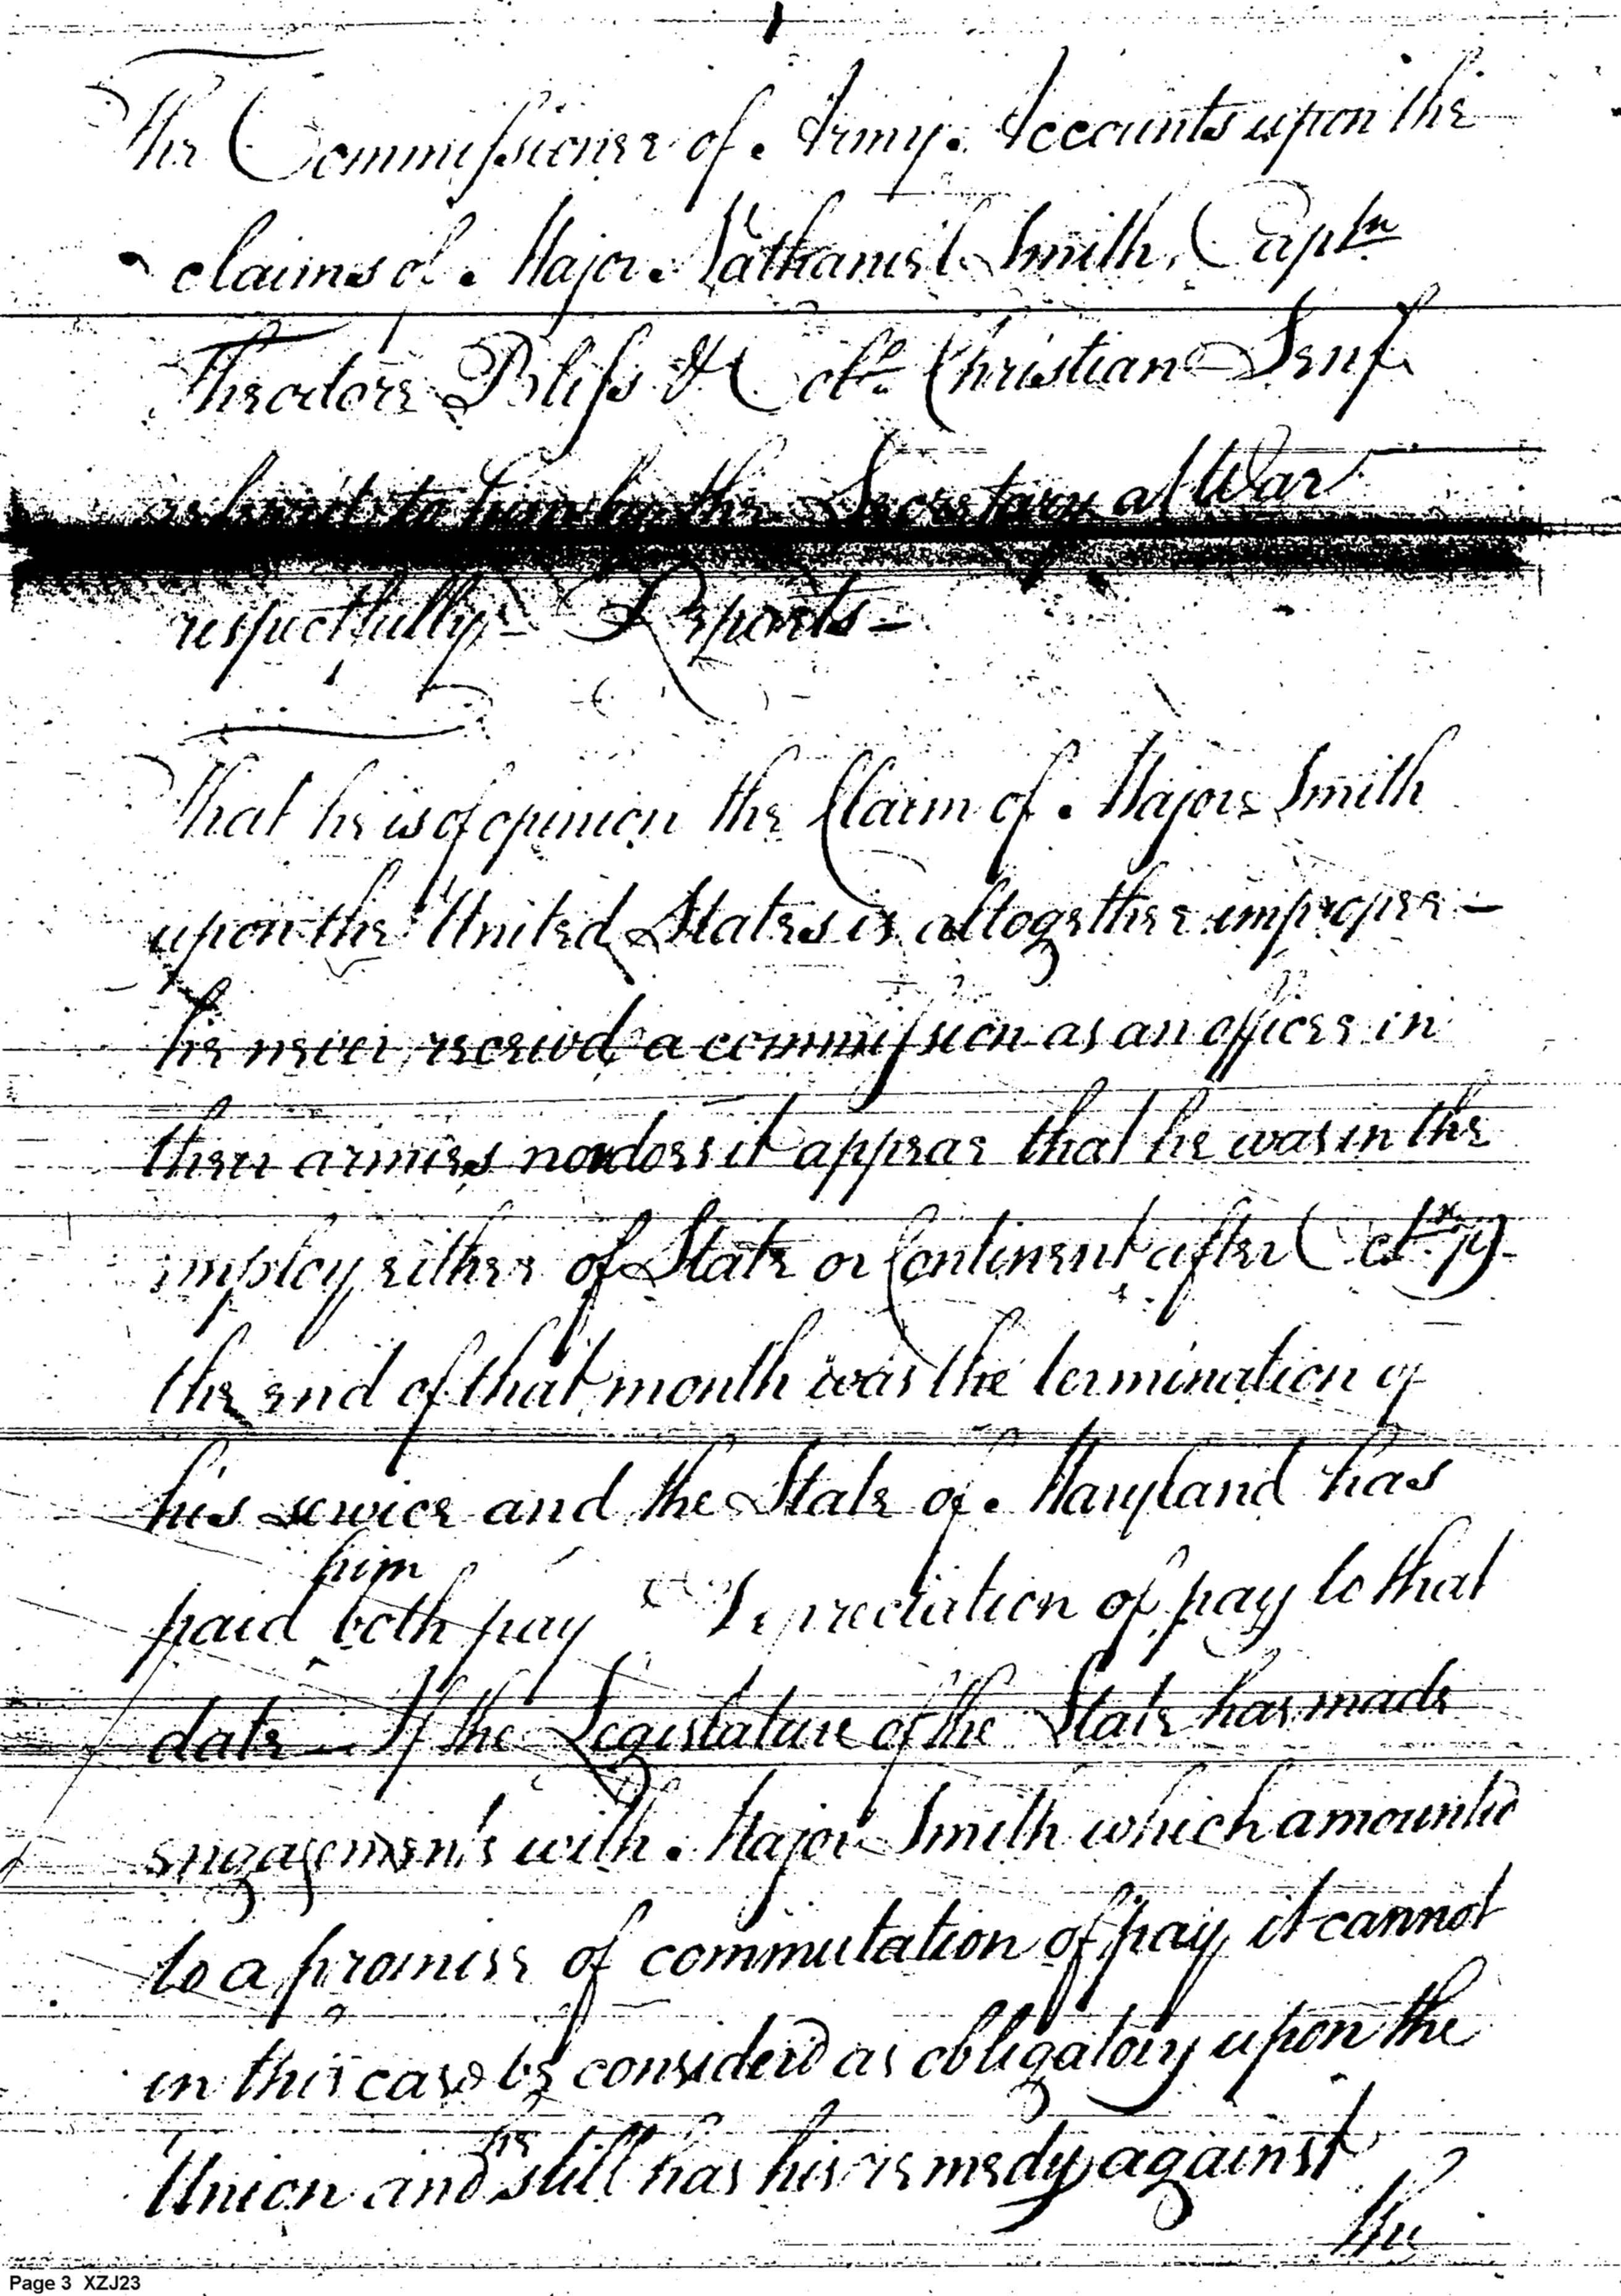 The Commissioner of Army Accounts upon the
claims of Major Nathaniel Smith, Captn
Theodore Bliss & Colo Christian Senf
to him by the Secretary at War
respectfully Reports —
That he is of opinion the Claim of Major Smith
upon the United States is altogether improper —
he never receivd a commission as an officer in
their armies nor does it appear that he was in the
imploy either of State or Continent after Octr 79
the end of that month was the termination of
his service and the State of Maryland has
him
paid both pay Depreciation of pay to that
date — If the Legislature of the State has made
engagements with Major Smith which amounted
to a promise of commutation of pay it cannot
in this case be considerd as obligatory upon the
he
Union and still has his remedy against
the
Page 3 XZJ23